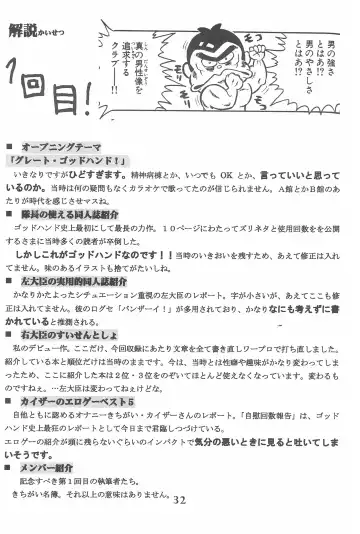 解説かいせつ
1回目!
男の強さ
とはあ!?
男のやさしさ
とはあ!?
真の男性像を
追求する
クラブ──!!
■ オープニングテーマ
「グレート・ゴッドハンド！」
いきなりですがひどすぎます。精神病棟とか、いつでも OK とか、言っていいと思って
いるのか。当時は何の疑問もなくカラオケで歌ってたのが信じられません。A館とかB館のあ
たりが時代を感じさせマスね。
■ 隊長の使える同人誌紹介
ゴッドハンド史上最初にして最長の力作。１０ページにわたってズリネタと使用回数をを公開
するさまに当時多くの読者が卒倒した。
しかしこれがゴッドハンドなのです！！当時のいきおいを残すため、あえて修正は入れ
てません。味のあるイラストも捨てがたいしね。
■ 左大臣の実用的同人誌紹介
かなりかたよったシチュエーション重視の左大臣のレポート。字が小さいが、あえてここも修
正は入れてません。彼のログセ「バンザーイ！」が多用されており、かなりなにも考えずに書
かれていると推測される。
■ 右大臣のすいせんとしょ
私のデビュー作。ここだけ、今回収録にあたり文章を全て書き直しワープロで打ち直しました。
紹介している本と順位だけは当時のままです。今は、当時とは性癖や趣味がかなり変わってしま
ったため、ここに紹介した本は２位・３位をのぞいてほとんど使えなくなっています。変わるも
のですねぇ。…左大臣は変わってねぇけどな。
■ カイザーのエロゲーベスト５
自他ともに認めるオナニーきちがい・カイザーさんのレポート。「自慰回数報告」は、ゴッド
ハンド史上最狂のレポートとして今日まで君臨しつづけている。
エロゲーの紹介が頭に残らないぐらいのインパクトで気分の悪いときに見ると吐いてしま
いそうです。
■ メンバー紹介
記念すべき第１回目の執筆者たち。
きちがい名簿。それ以上の意味はありません。
32